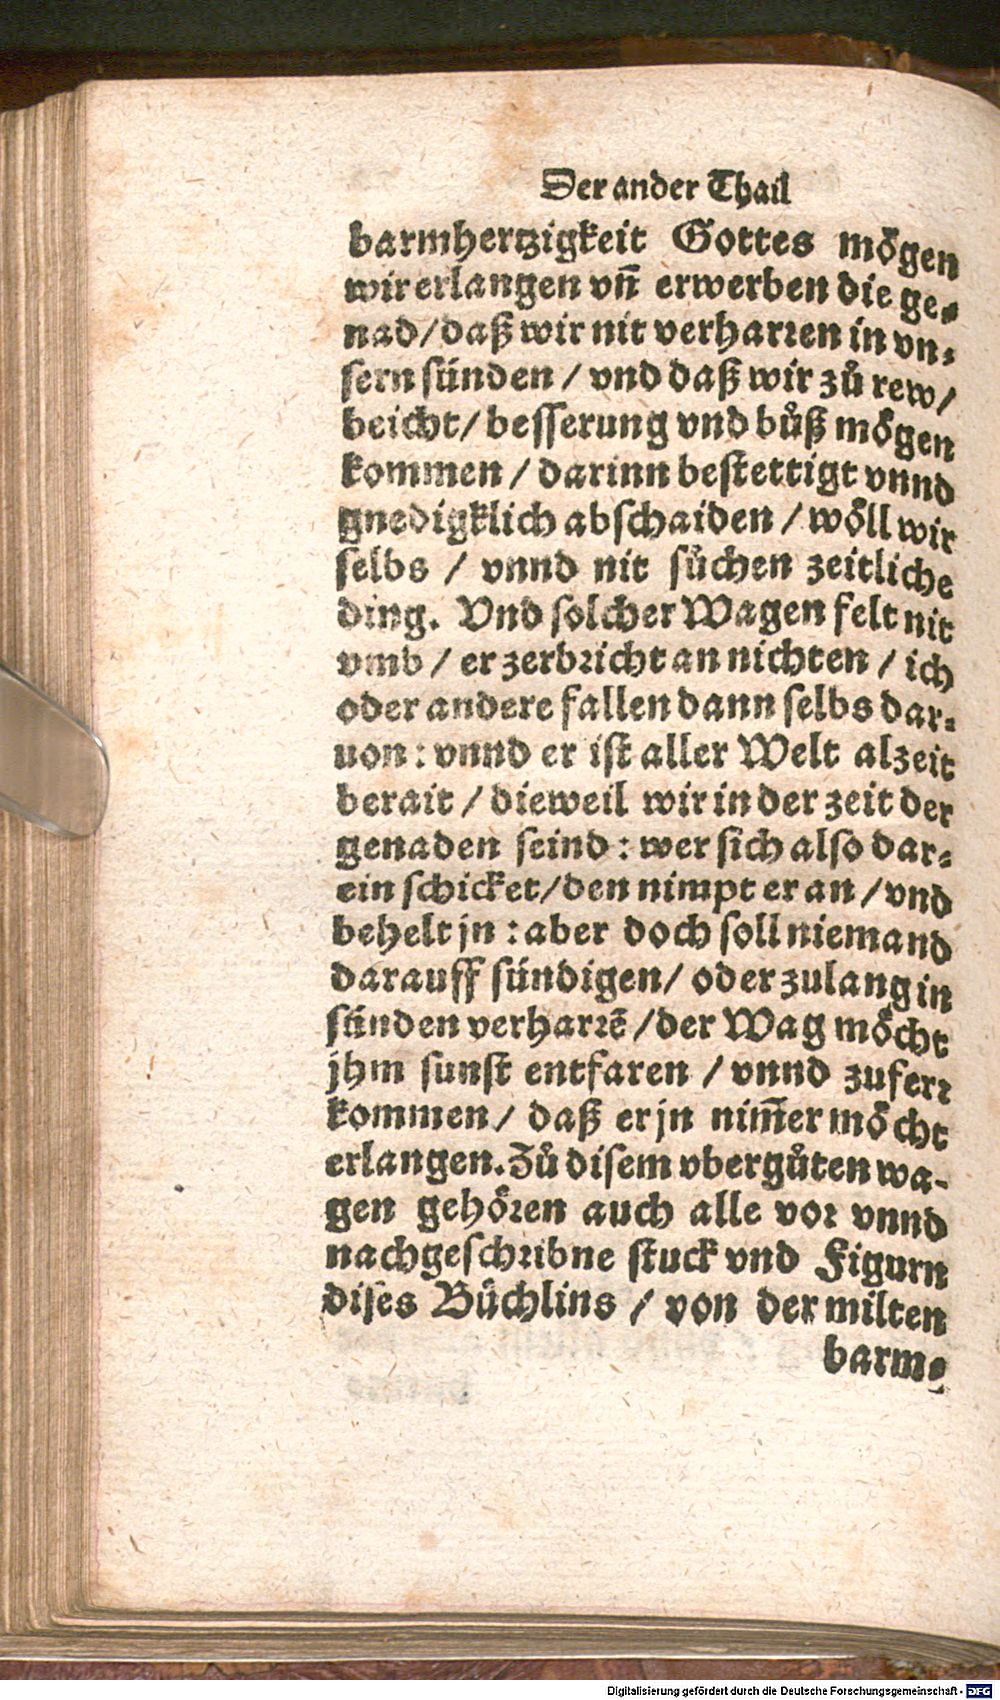 Der ander Thail
barmhertzigkeit Gottes mögen
wir erlangen vn̄ erwerben die ge-
nad/daß wir nit verharren in vn-
sern sünden / vnd daß wir zů rew/
beicht/ besserung vnd bůß mögen
kommen / darinn bestettigt vnnd
gnedigklich abschaiden / wöll wir
selbs / vnnd nit sůchen zeitliche
ding. Vnd solcher Wagen felt nit
vmb / er zerbricht an nichten / ich
oder andere fallen dann selbs dar-
uon : vnnd er ist aller Welt alzeit
berait / dieweil wir in der zeit der
genaden seind : wer sich also dar-
ein schicket/den nimpt er an /vnd
behelt jn : aber doch soll niemand
darauff sündigen/ oder zulang in
sünden verharrē /der Wag möcht
jhm sunst entfaren / vnnd zuferr
kommen/ daß er jn nim̄er möcht
erlangen. Zů disem vbergůten wa-
gen gehören auch alle vor vnnd
nachgeschribne stuck vnd Figurn
dises Büchlins / von der milten
barm-
Digitalisierung gefördert durch die Deutsche Forschungsgemeinschaft - DFG